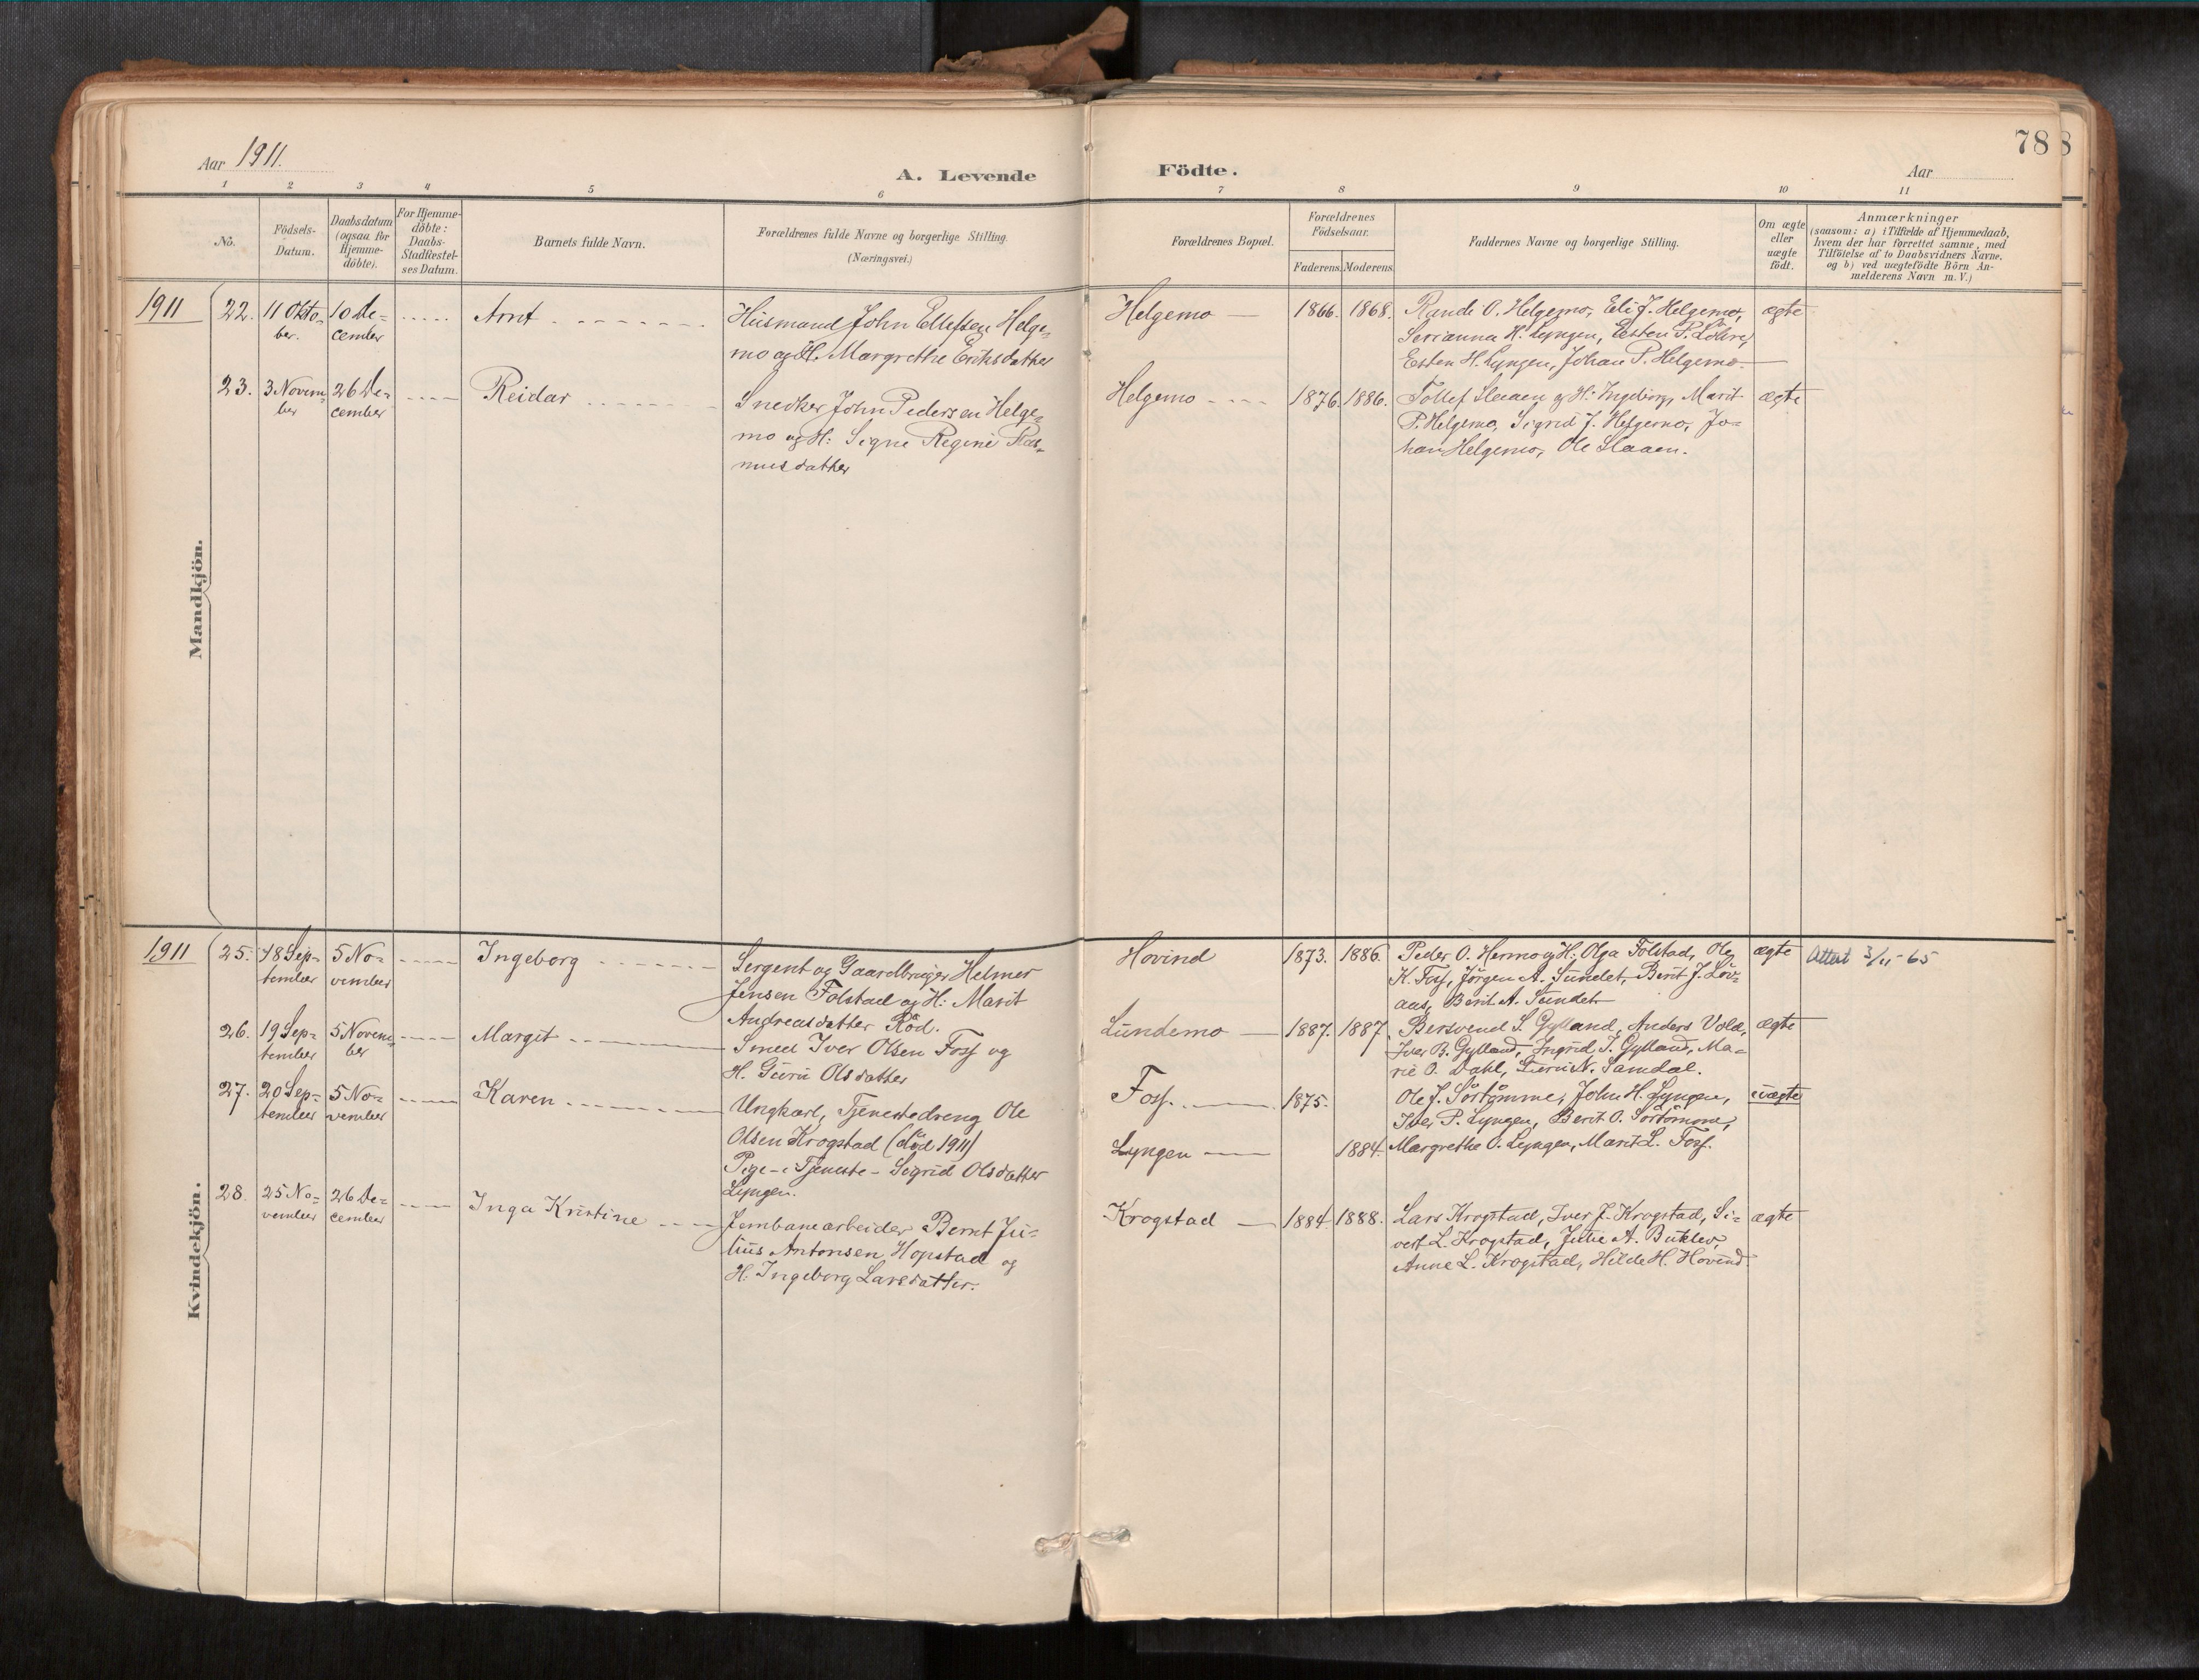 78
8
Aar 1911.
A. Levende Födte.
Aar
1 2 3 4 5 6 7 8 9 10 11
No.
Födsels-
Datum.
Daabsdatum
(ogsaa for
Hjemme-
döbte).
For Hjemme-
döbte:
Daabs-
Stadfæstel-
ses Datum.
Barnets fulde Navn.
Forældrenes fulde Navne og borgerlige Stilling.
(Næringsvei.)
Forældrenes Bopæl.
Forældrenes
Födselsaar.
Faderens. Moderens.
Faddernes Navne og borgerlige Stilling.
Om ægte
eller
uægte
födt.
Anmærkninger
(saasom: a) i Tilfælde af Hjemmedaab,
hvem der har forrettet samme, med
Tilföielse af to Daabsvidners Navne,
og b) ved uægtefödte Börn An-
melderens Navn m. V.)
Mandkjön.
1911
22.
11 Okto-
ber.
10 De-
cember
Arnt
Husmand John Ellefsen Helge-
mo og H. Margrethe Eriksdatter
Helgemo
1866. 1868.
Randi O. Helgemo, Eli J. Helgemo,
Serianna H. Lyngen, Esten P. Löhre,
Esten H. Lyngen, Johan P. Helgemo.
ægte
23.
3 Novem-
ber
26 De-
cember
Reidar
Snedker John Pedersen Helge-
mo og H: Signe Regine Ras-
musdatter
Helgemo
1876. 1886.
Tollef Slaaen og H: Ingeborg, Marit
P. Helgemo, Sigrid J. Helgemo, Jo-
han Helgemo, Ole Slaaen.
ægte
Kvindekjön.
1911
25.
18 Sep-
tember
5 No-
vember
Ingeborg
Sergent og Gaardbruger Helmer
Jensen Folstad og H: Marit
Andreasdatter Röd.
Hovind
1873. 1886.
Peder O. Hermo og H: Olga Folstad, Ole
K. Foss, Jörgen A. Sundet, Berit J. Löv-
aas, Berit A. Sundet
ægte
Attest 3/11-65
26.
19 Sep-
tember
5 Novem-
ber
Margit
Smed Iver Olsen Foss og
H. Guru Olsdatter
Lundemo
1887. 1887.
Bersvend S. Gylland, Anders Vold,
Iver B. Gylland, Ingrid I. Gylland, Ma-
rie O. Dahl, N. Samdal.
ægte
27.
20 Sep-
tember
5 No-
vember
Karen
Ungkarl, Tjenestedreng Ole
Olsen Krogstad (död 1911)
Pige - i Tjeneste - Sigrid Olsdatter
Lyngen.
Foss.
1875.
Lyngen
1884.
Ole J. Sörtömme, John H. Lyngen,
Iver P. Lyngen, Berit O. Sörtömme,
Margrethe O. Lyngen, Marit L. Foss.
uægte
28.
25 No-
vember
26 De-
cember
Inga Kristine
Jernbanearbeider Bernt Ju-
lius Antonsen Hopstad og
H: Ingeborg Larsdatter.
Krogstad
1884. 1888.
Lars Krogstad, Iver J. Krogstad, Si-
vert L. Krogstad, Julie A. Buklev,
Anne L. Krogstad, Hilde H. Hovind.
ægte